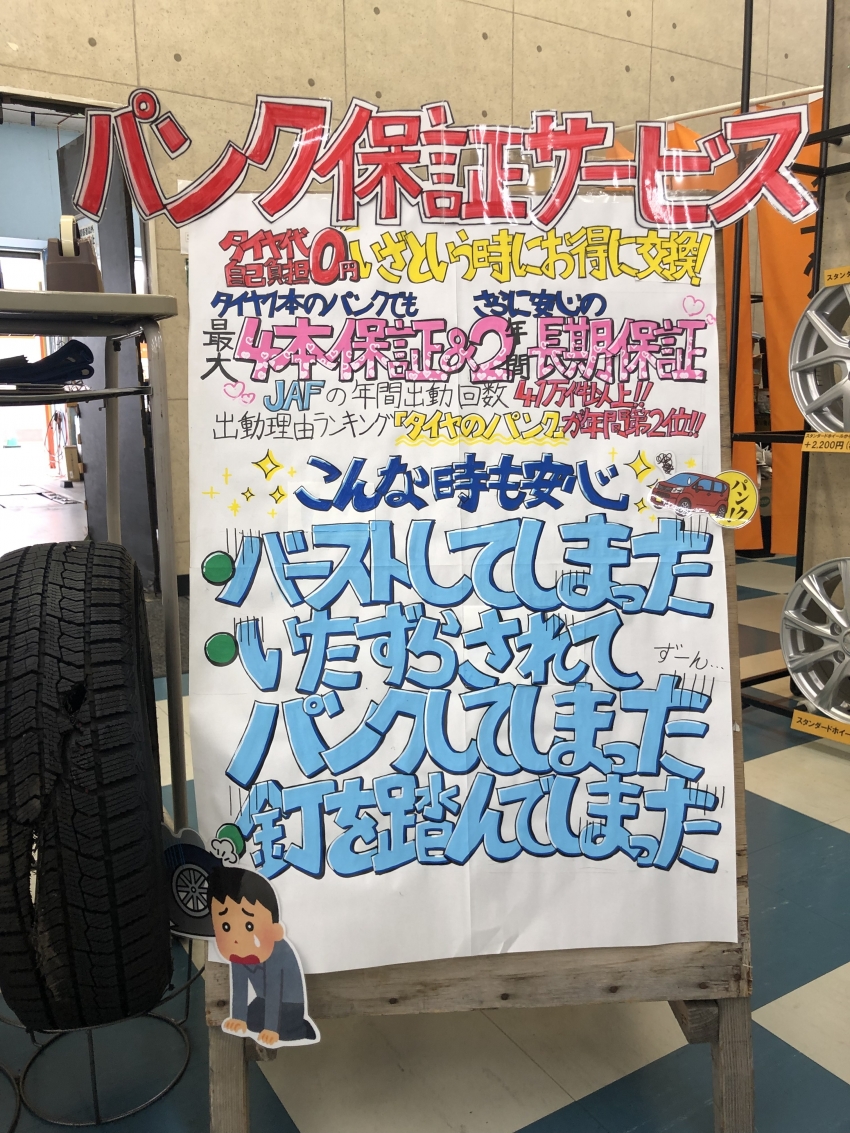 パンク保証サービス
タイヤ代
自己負担0円
いざという時にお得に交換!
タイヤ1本のパンクでも さらに安心の
最大4本保証&2年間長期保証
JAFの年間出動回数41万件以上!!
出動理由ランキング『タイヤのパンク』が年間第2位!!
こんな時も安心
パンク!
バーストしてしまった
いたずらされて
ずーん…
パンクしてしまった
釘を踏んでしまった
+2,200円
スタンダードホイー